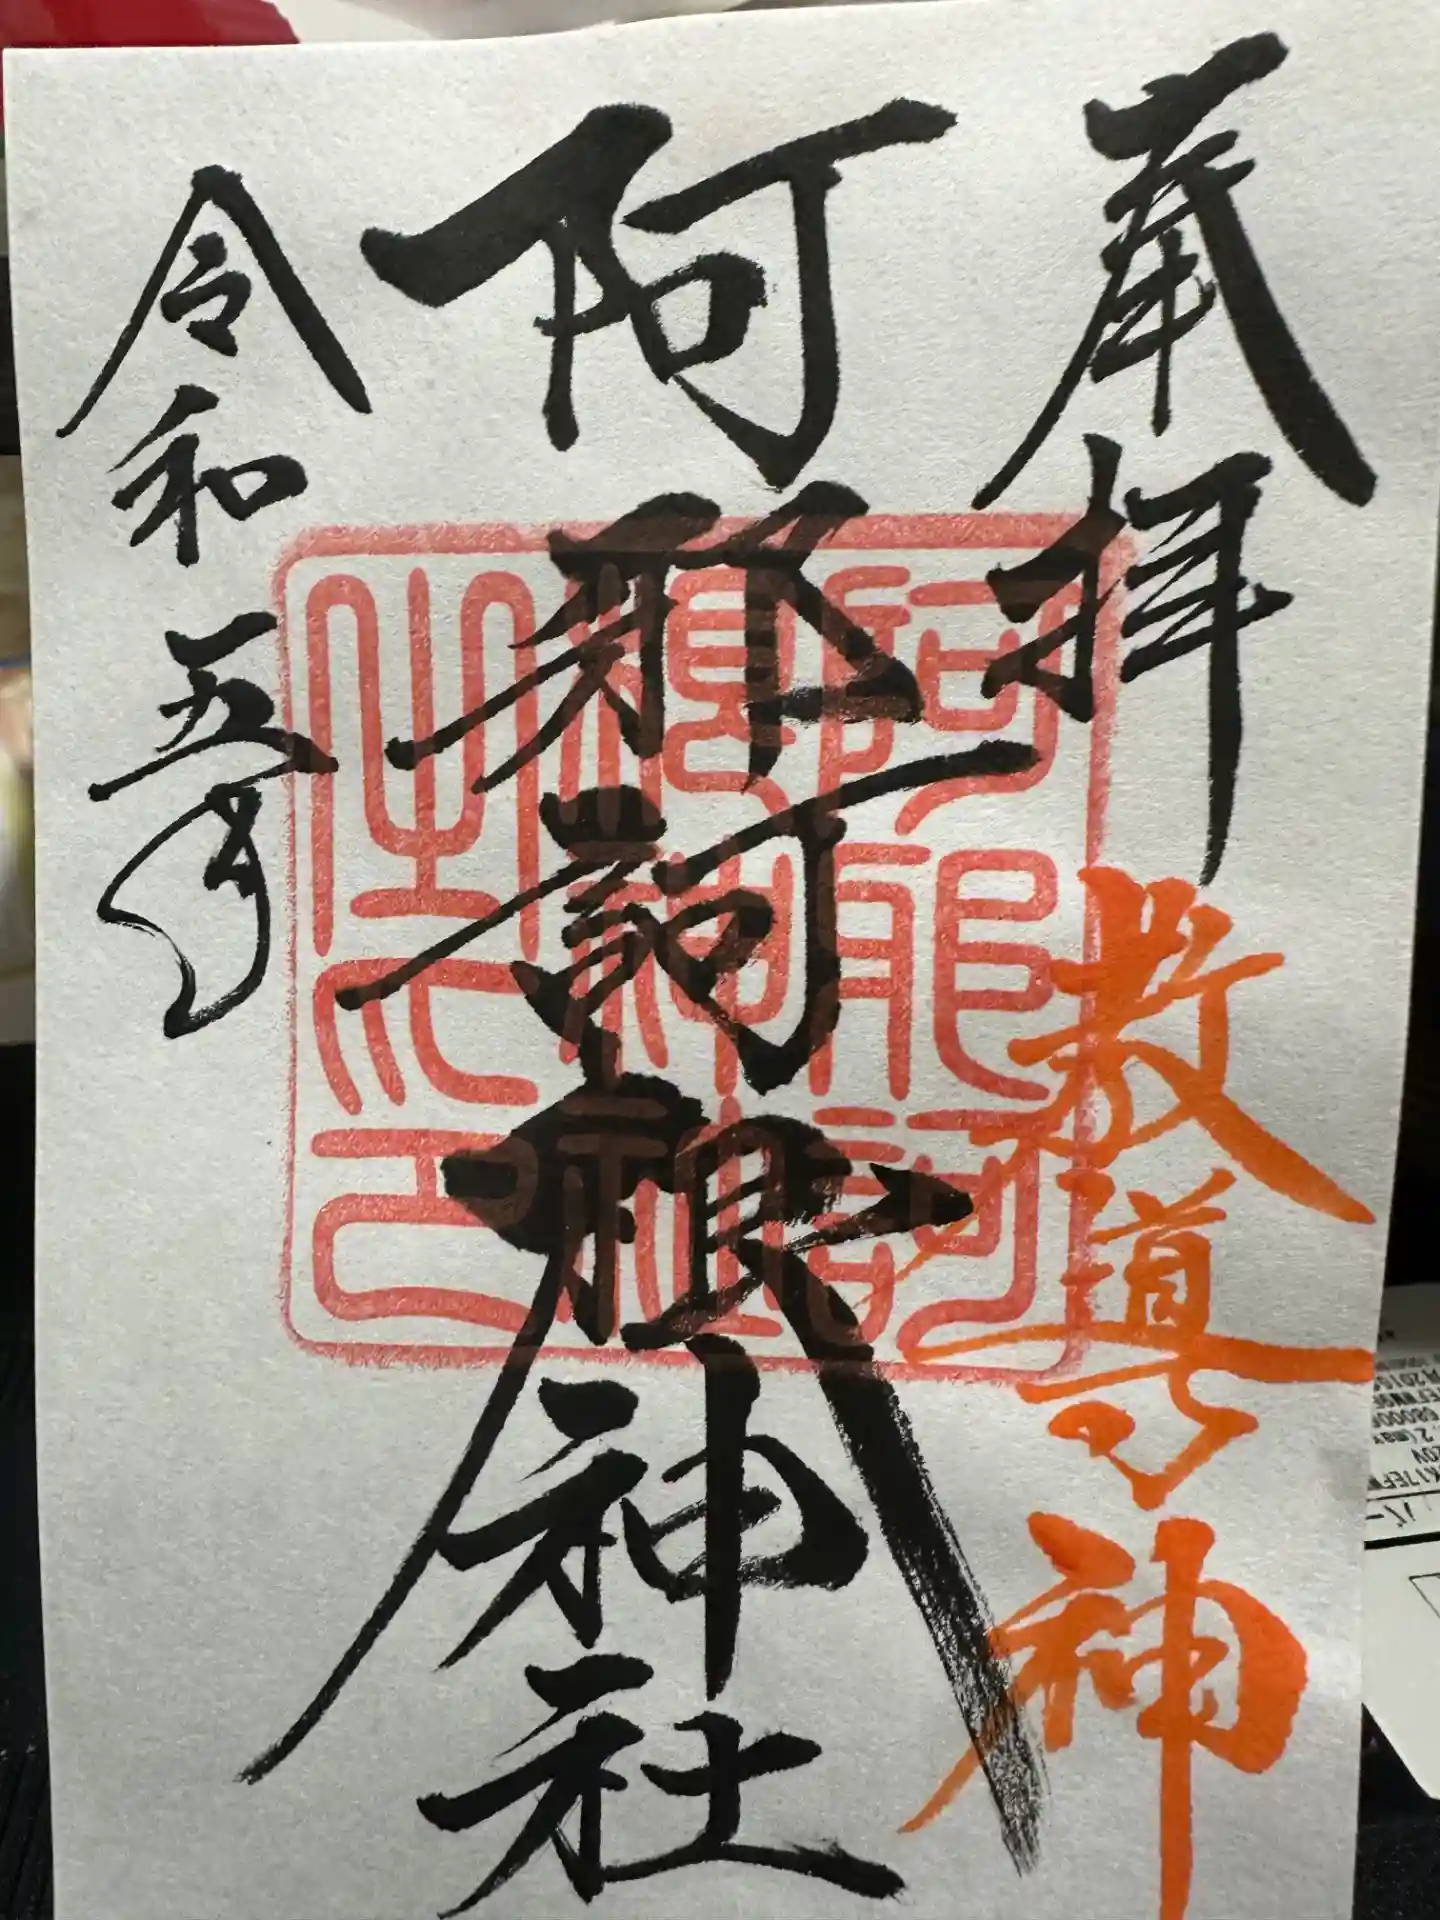 奉拝
教導の神
阿邪訶根神社
阿邪訶
根神社
之印
令和五年